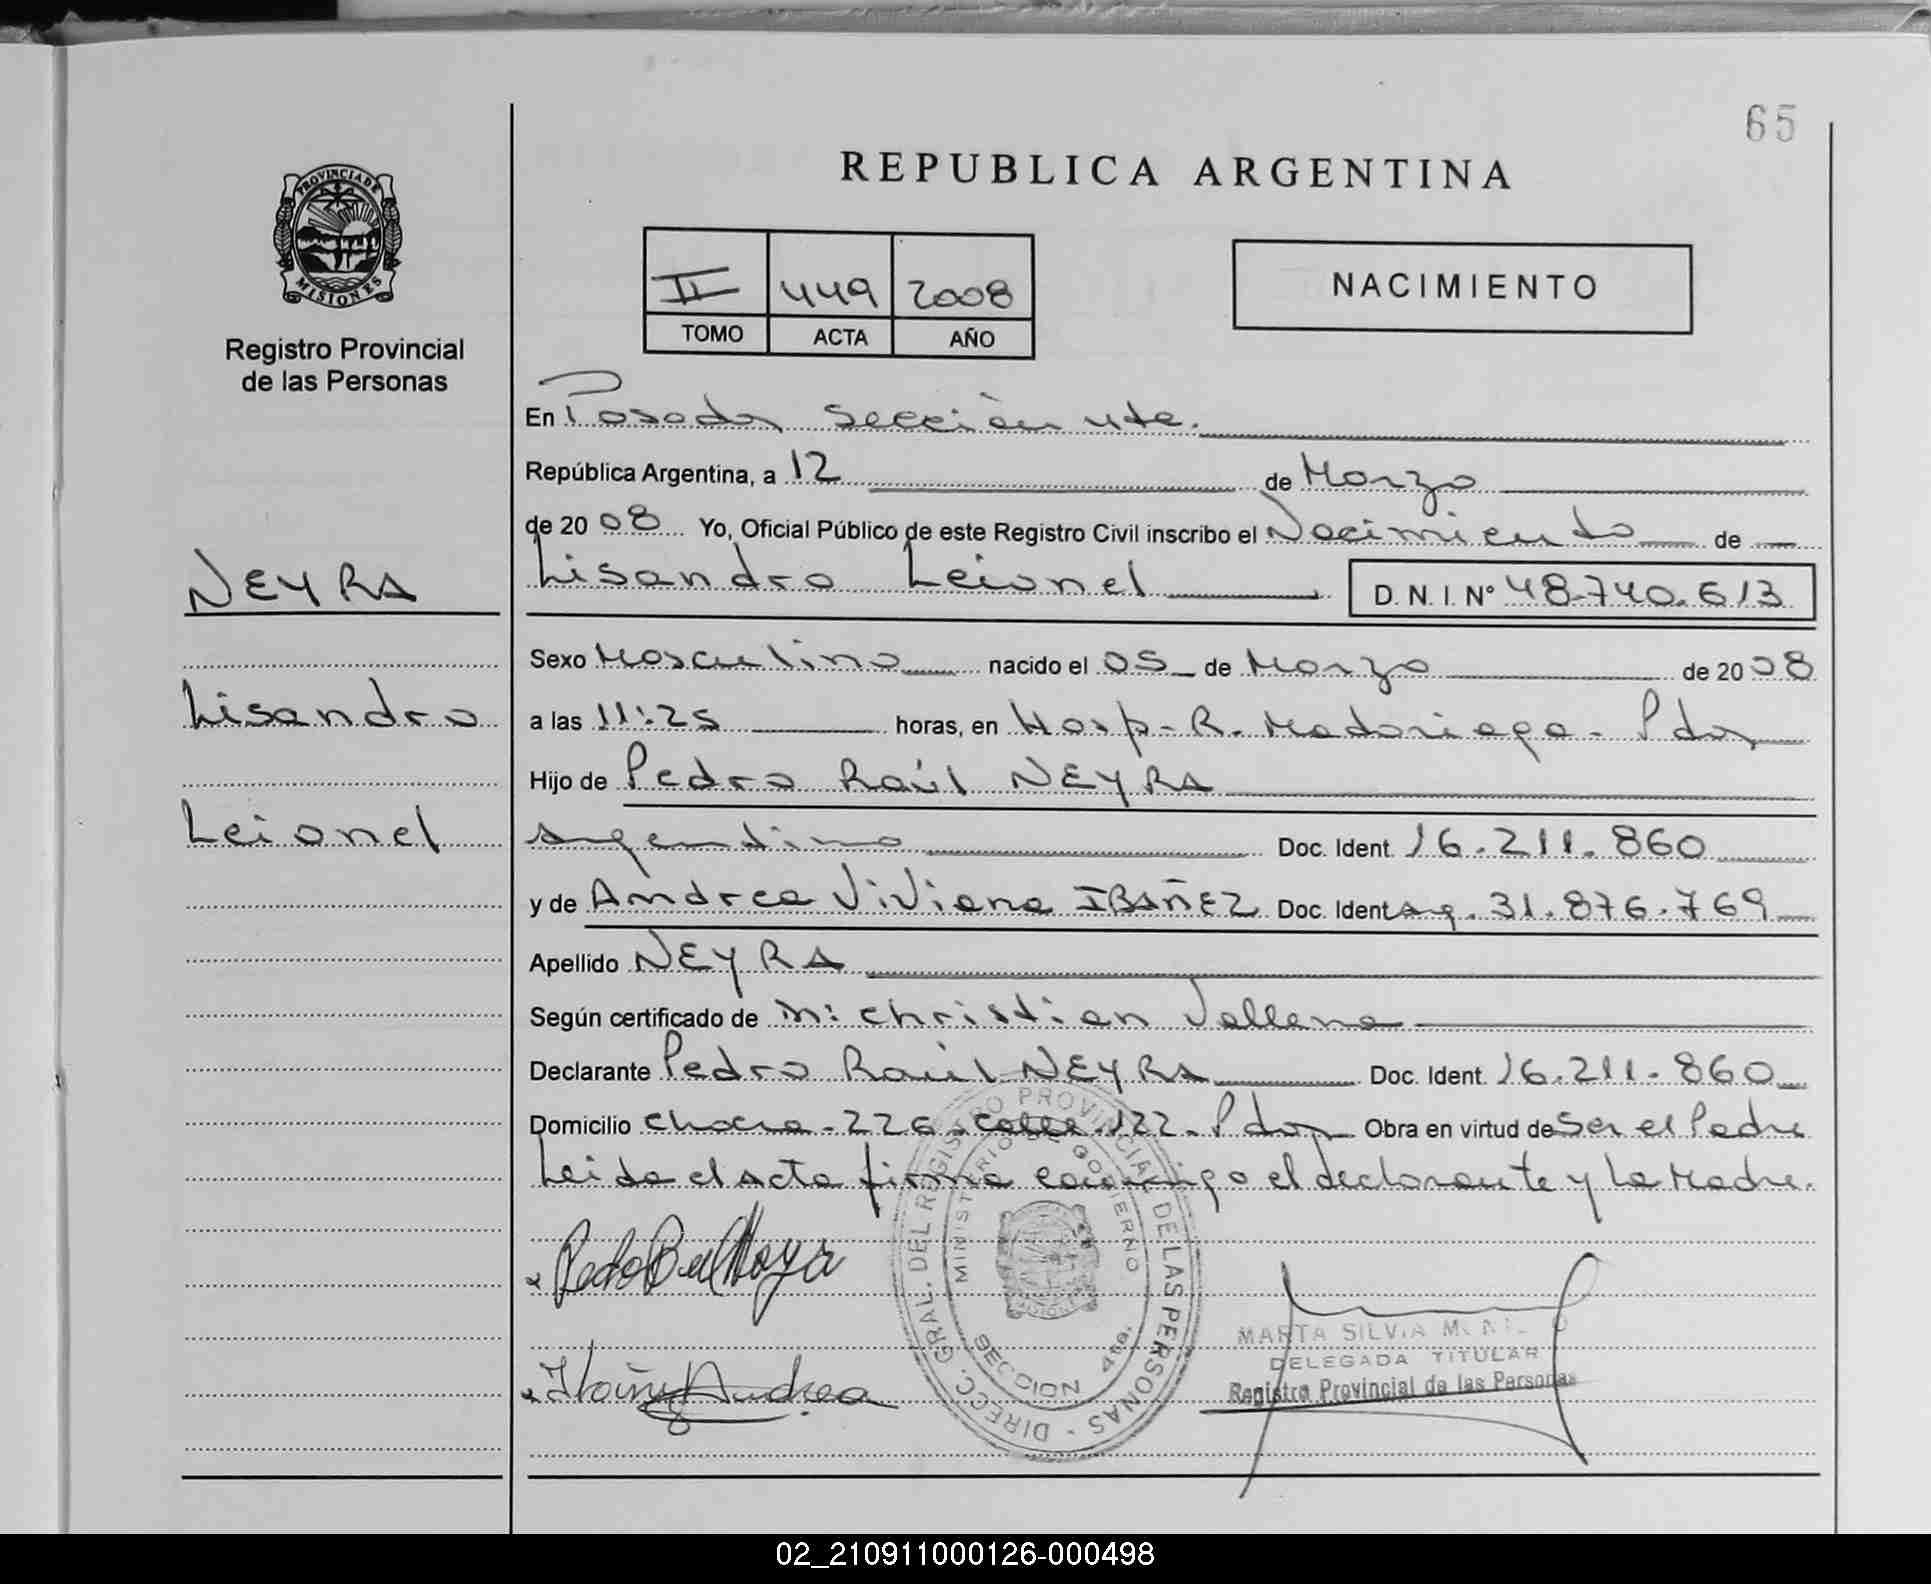 65
REPUBLICA ARGENTINA
PROVINCIA DE
MISIONES
Registro Provincial
de las Personas
II 449 2008
TOMO ACTA AÑO
NACIMIENTO
En Posadas Sección 4ta.
República Argentina, a 12 de Marzo
de 2008 Yo, Oficial Público de este Registro Civil inscribo el Nacimiento de
NEYRA
Lisandro Leionel D.N.I. Nº 48.740.613
Sexo Masculino nacido el 05 de Marzo de 2008
Lisandro
a las 11:25 horas, en Hosp- R. Madariaga - Pdas
Hijo de Pedro Raúl NEYRA
Leionel
Argentino Doc. Ident. 16.211.860
y de Andrea Viviana IBAÑEZ Doc. Ident Arg. 31.876.769
Apellido NEYRA
Según certificado de M: Christian Vallena
Declarante Pedro Raúl NEYRA Doc. Ident. 16.211.860
Domicilio Chacra - 226 - Calle 122 - Pdas Obra en virtud de Ser el Padre
Leida el Acta firma conmigo el declarante y La Madre.
DIRECC. GRAL. DEL REGISTRO PROVINCIAL DE LAS PERSONAS
MINISTERIO GOBIERNO
SECCION 4ta.
Andrea
MARTA SILVIA
DELEGADA TITULAR
Registro Provincial de las Personas
02_210911000126-000498